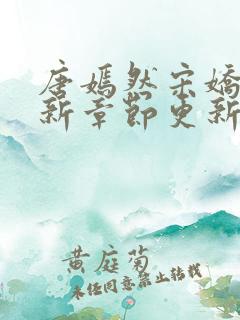 唐嫣然宋娇
新章节更新
黄庭菊
未经同意禁止转载